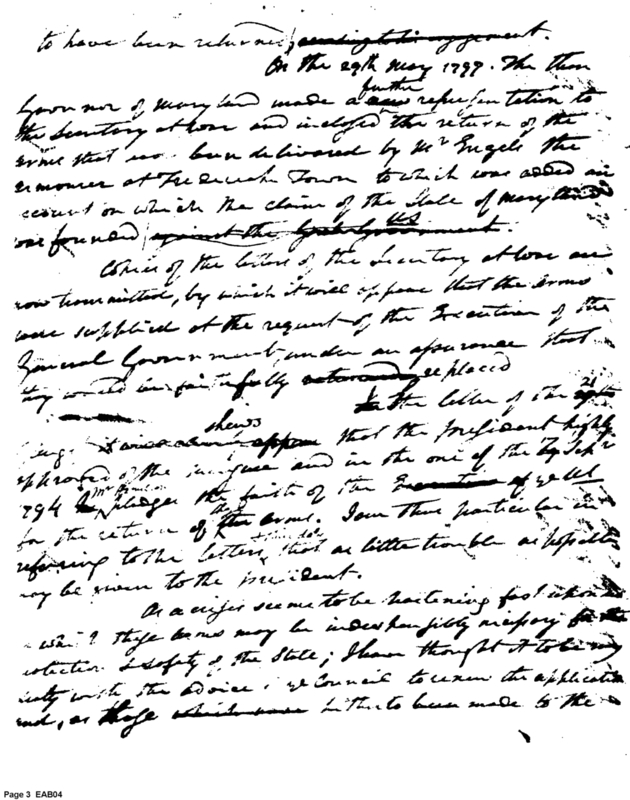 to have been returned, according to his engagement.
On the 29th May 1797. The then
further
Governor of Maryland made a new representation to
the Secretary at war and inclosed the return of the
arms that had been delivered by Mr Engels the
armourer at Frederick Town to which was added an
account on which the claim of the State of Maryland
was founded against the US Government.
Copies of the letters of the Secretary at war are
now transmitted, by which it will appear that the arms
were supplied at the request of the Executive of the
General Government under an assurance that
they would be faithfully returned replaced
In the letter of the 21
shews
appear that the president highly
approved of the and in the one of the Sept
794 pledges the faith of the Executive of ye US
for the return of the arms. I am thus particular in
referring to the letters, that as little trouble as possible
may be given to the president.
As a crisis seems to be hastening fast upon
which these arms may be indispensibly necessary for the
protection & safety of the State; I have thought it to be my
duty with the advice of ye Council to renew the application
and, as those which were hitherto been made to the
Page 3 EAB04